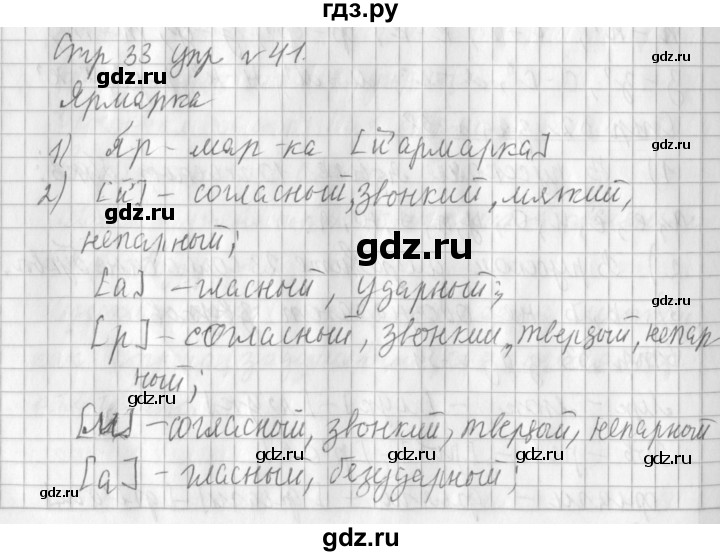 гдз.ру
Стр 33 упр №41.
gdz.ru
gdz.ru
Ярмарка
gdz.ru
1) Яр-мар-ка [й'армарка]
2) [й'] - согласный, звонкий, мягкий,
gdz.ru
непарный;
gdz.ru
[а] - гласный, ударный;
gdz.ru
[р] - согласный, звонкий, твердый, непар
ный;
gdz.ru
[м] - согласный, звонкий, твердый, непарный
gdz.ru
[а] - гласный, безударный;
gdz.ru
gdz.ru
gdz.ru